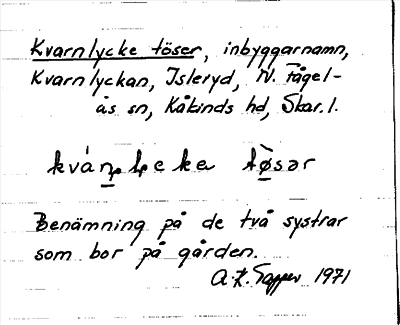 Kvarnlycke töser, inbyggarnamn,
Kvarnlyckan, Isleryd, N. Fågel-
ås sn, Kåkinds hd, Skar. l.
kván̠ḷeke tø̀sər
Benämning på de två systrar
som bor på gården.
1971